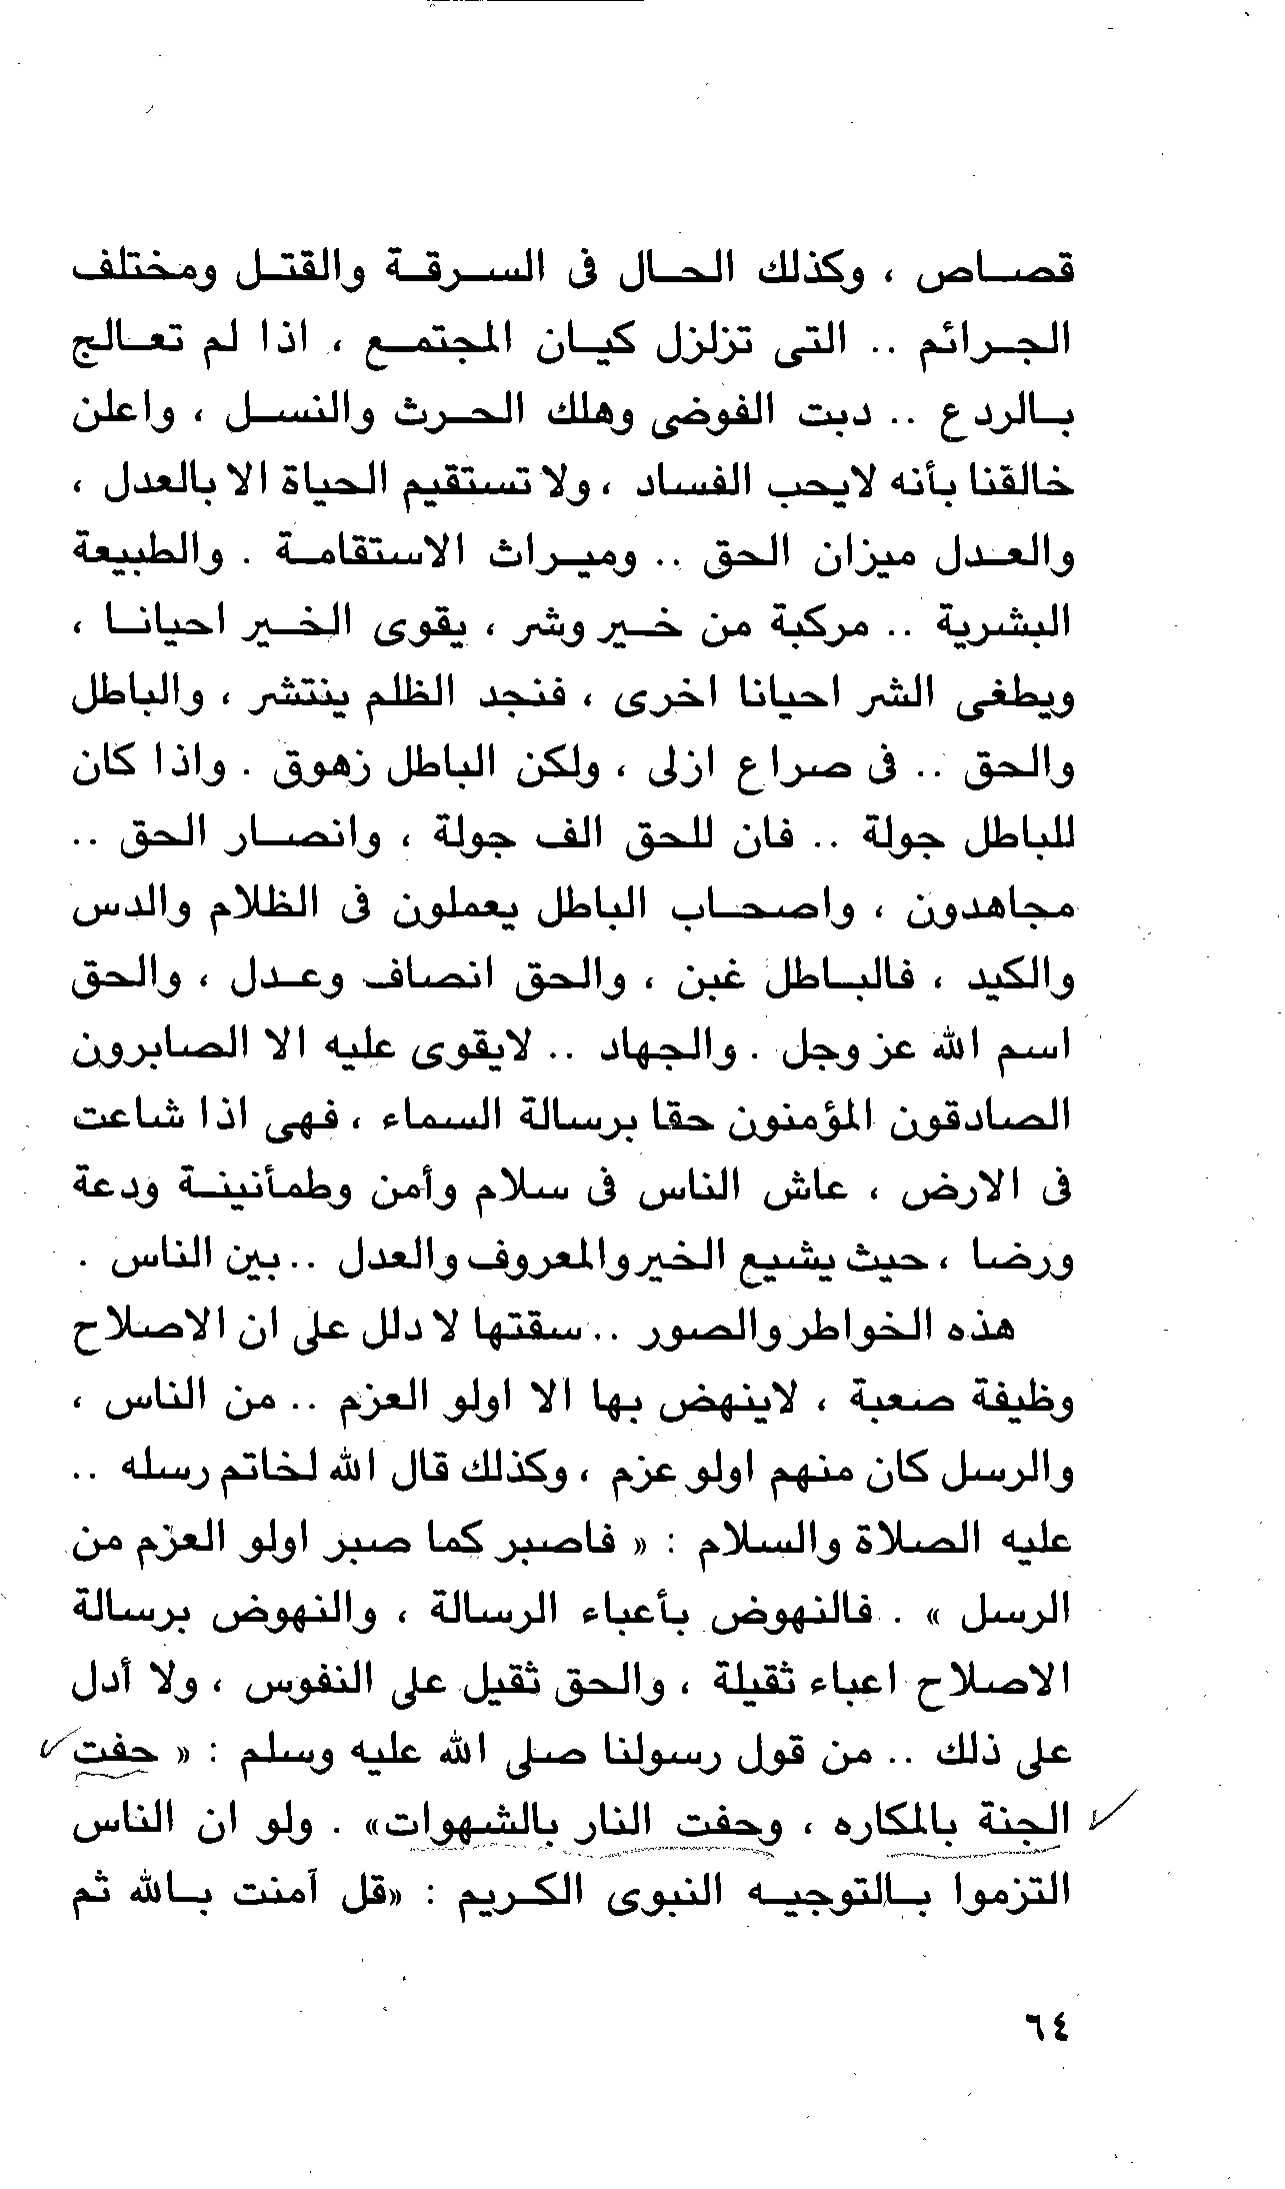 قصاص ، وكذلك الحال فى السرقة والقتل ومختلف
الجرائم .. التى تزلزل كيان المجتمع ، اذا لم تعالج
بالردع .. دبت الفوضى وهلك الحرث والنسل ، واعلن
خالقنا بأنه لايحب الفساد ، ولا تستقيم الحياة الا بالعدل ،
والعدل ميزان الحق .. وميراث الاستقامة . والطبيعة
البشرية .. مركبة من خير وشر ، يقوى الخير احيانا ،
ويطغى الشر احيانا اخرى ، فنجد الظلم ينتشر ، والباطل
والحق .. فى صراع ازلى ، ولكن الباطل زهوق . واذا كان
للباطل جولة .. فان للحق الف جولة ، وانصار الحق ..
مجاهدون ، واصحاب الباطل يعملون فى الظلام والدس
والكيد ، فالباطل غبن ، والحق انصاف وعدل ، والحق
اسم الله عز وجل . والجهاد .. لايقوى عليه الا الصابرون
الصادقون المؤمنون حقا برسالة السماء ، فهى اذا شاعت
فى الارض ، عاش الناس فى سلام وأمن وطمأنينة ودعة
ورضا ، حيث يشيع الخير والمعروف والعدل .. بين الناس .
هذه الخواطر والصور .. سقتها لا دلل على ان الاصلاح
وظيفة صعبة ، لاينهض بها الا اولو العزم .. من الناس ،
والرسل كان منهم اولو عزم ، وكذلك قال الله لخاتم رسله ..
عليه الصلاة والسلام : « فاصبر كما صبر اولو العزم من
الرسل » . فالنهوض بأعباء الرسالة ، والنهوض برسالة
الاصلاح اعباء ثقيلة ، والحق ثقيل على النفوس ، ولا أدل
على ذلك .. من قول رسولنا صلى الله عليه وسلم : « حفت
الجنة بالمكاره ، وحفت النار بالشهوات» . ولو ان الناس
التزموا بالتوجيه النبوى الكريم : «قل آمنت بالله ثم
٦٤